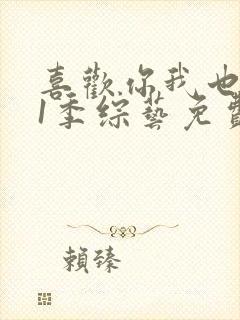 喜歡你我也
1季綜藝免費
賴臻